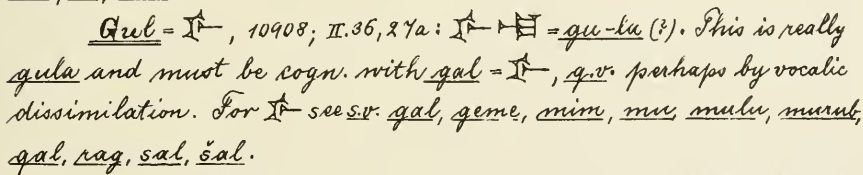 Gul = 𒊩, 10908; II.36, 27a: 𒊩 𒆷 = gu-lu (?). This is really
gula and must be cogn. with gal = 𒊩, q.v. perhaps by vocalic
dissimilation. For 𒊩 see s.v. gal, geme, mim, mu, mulu, murub,
qal, rag, sal, šal.